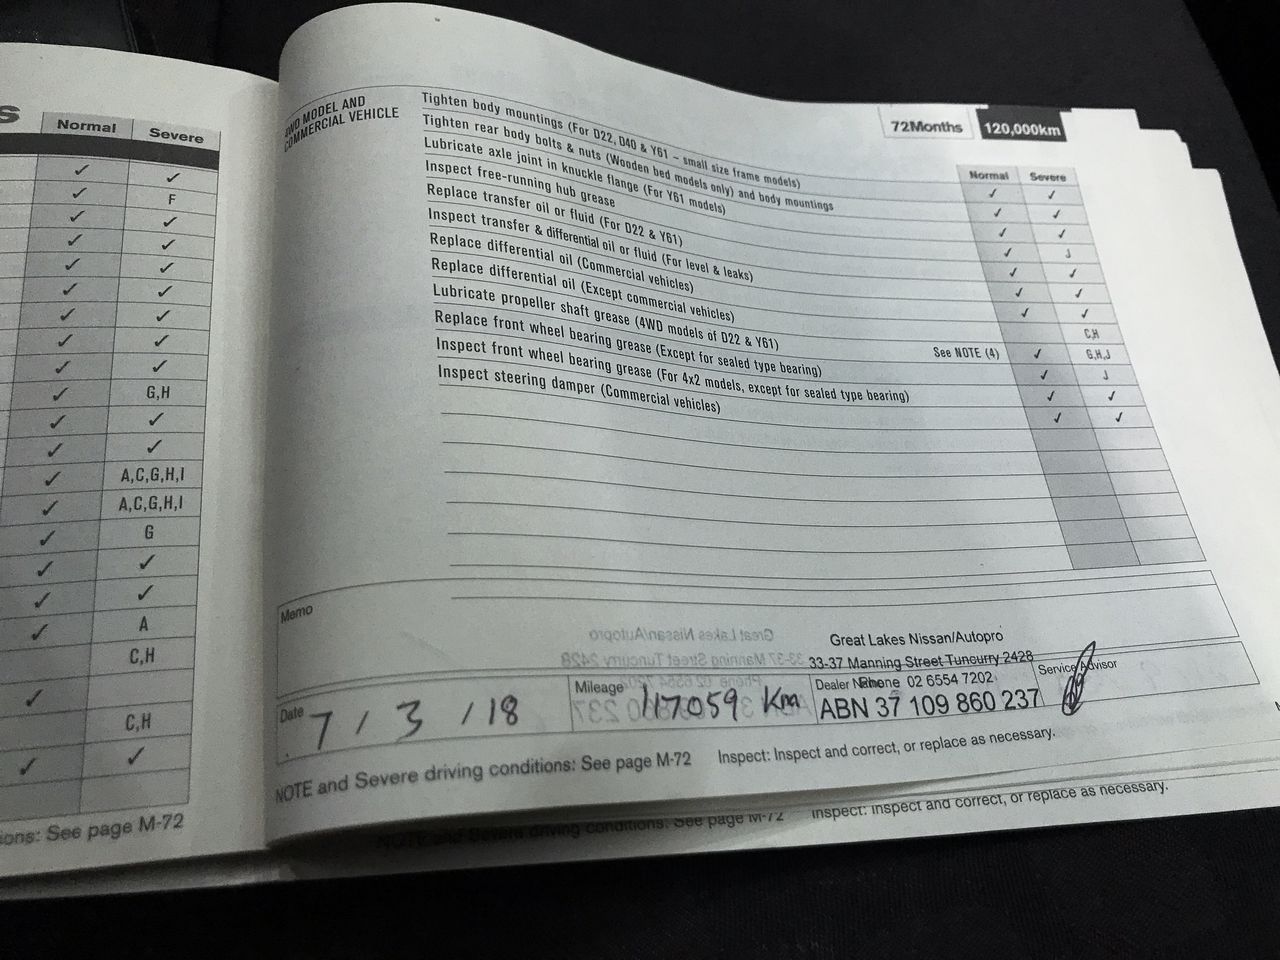 S
Normal Severe
✓ ✓
✓ F
✓ ✓
✓ ✓
✓ ✓
✓ ✓
✓ ✓
✓ ✓
✓ ✓
✓ G,H
✓ ✓
✓ ✓
✓ A,C,G,H,I
✓ A,C,G,H,I
✓ G
✓ ✓
✓ ✓
✓ A
C,H
✓
C,H
✓ ✓
ions: See page M-72
72Months 120,000km
Normal Severe
4WD MODEL AND
COMMERCIAL VEHICLE
Tighten body mountings (For D22, D40 & Y61 – small size frame models) ✓ ✓
Tighten rear body bolts & nuts (Wooden bed models only) and body mountings ✓ ✓
Lubricate axle joint in knuckle flange (For Y61 models) ✓ ✓
Inspect free-running hub grease ✓ J
Replace transfer oil or fluid (For D22 & Y61) ✓ ✓
Inspect transfer & differential oil or fluid (For level & leaks) ✓ ✓
Replace differential oil (Commercial vehicles) ✓ ✓
Replace differential oil (Except commercial vehicles) C,H
Lubricate propeller shaft grease (4WD models of D22 & Y61) See NOTE (4) ✓ G,H,J
Replace front wheel bearing grease (Except for sealed type bearing) ✓ J
Inspect front wheel bearing grease (For 4x2 models, except for sealed type bearing) ✓ ✓
Inspect steering damper (Commercial vehicles) ✓ ✓
Memo
Great Lakes Nissan/Autopro
33-37 Manning Street Tuncurry 2428
Dealer Name Phone 02 6554 7202
ABN 37 109 860 237
Service Advisor
Date 7 / 3 / 18
Mileage 117059 Km
NOTE and Severe driving conditions: See page M-72 Inspect: Inspect and correct, or replace as necessary.
NOTE and Severe driving conditions: See page M-72 Inspect: Inspect and correct, or replace as necessary.